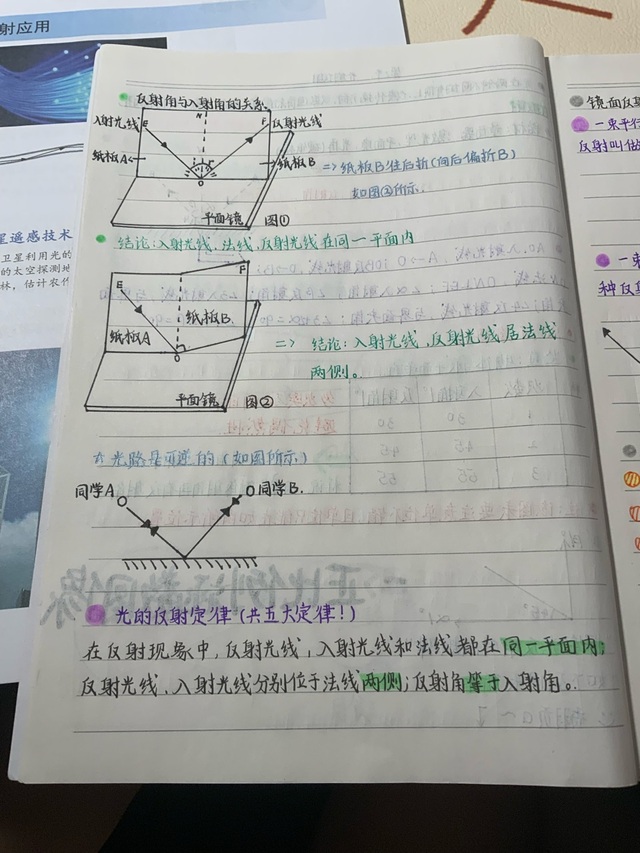 射应用
反射角与入射角的关系
入射光线
E
N
F
反射光线
纸板A
纸板B
O
=> 纸板B往后折(向后偏折B)
如图②所示.
平面镜
图①
结论:入射光线,法线,反射光线在同一平面内
E
F
纸板A
纸板B
O
=> 结论:入射光线,反射光线居法线
两侧。
平面镜
图②
光路是可逆的(如图所示)
同学A
同学B.
光的反射定律(共五大定律!)
在反射现象中,反射光线,入射光线和法线都在同一平面内;
反射光线、入射光线分别位于法线两侧;反射角等于入射角。
星遥感技术
卫星利用光的
的太空探测地
林,估计农作
镜面反射
一束平行
反射叫做
一束
种反射